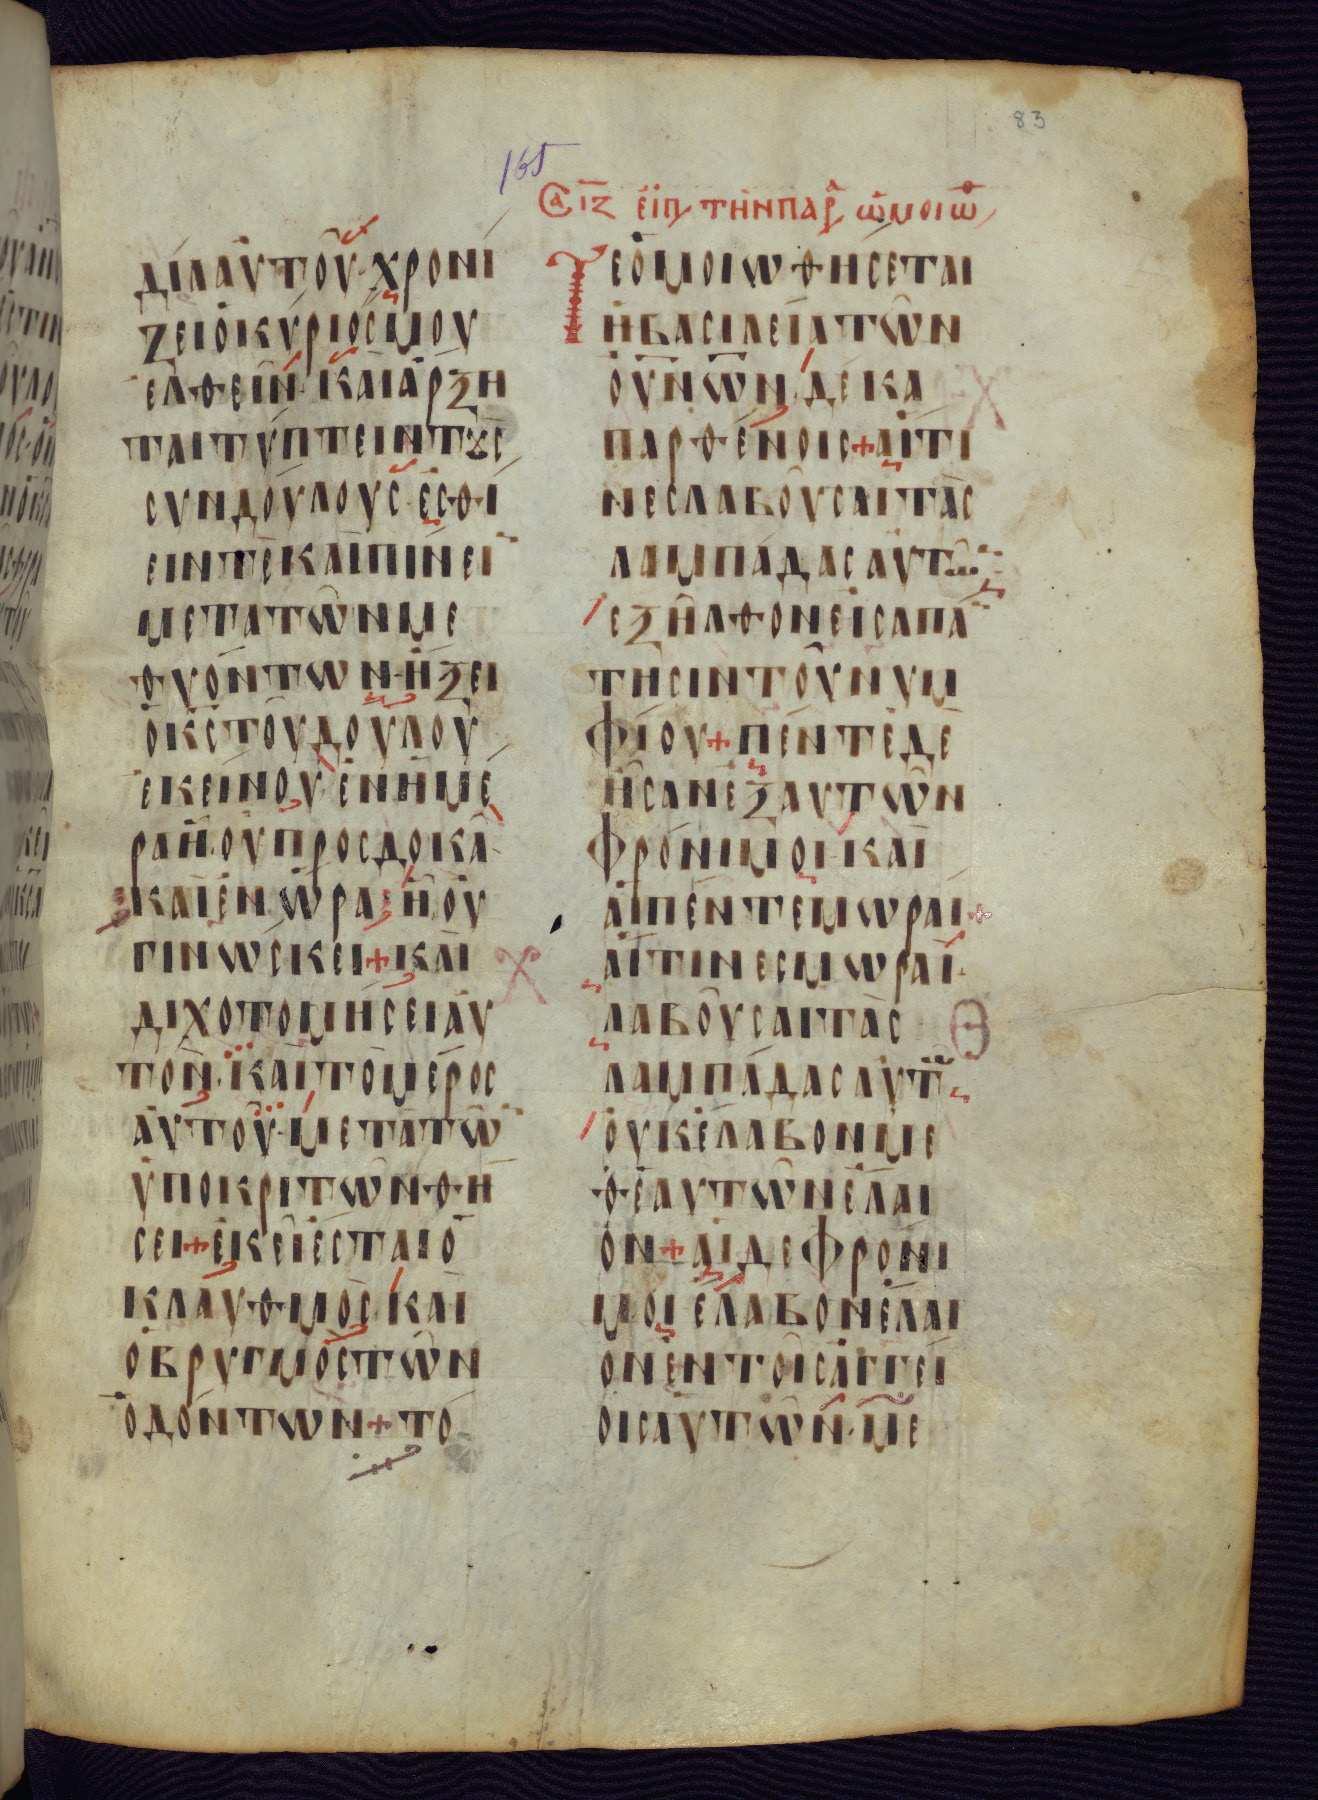 83
165
Σα ιζ ειπ την παρ ωμοιω
διααυτου·χρονι
ζειοκυριοσμου
ελθειν·καιαρξη
ταιτυπτειντȣσ
συνδουλουσ·εσθι
ειντεκαιπινει
μετατωνμε
θυοντων·ηξει
οκστουδουλου
εκεινου·ενημε
ραη·ουπροσδοκα·
καιενωρα·ηου
γινωσκει+και
διχοτομησειαυ
τον·καιτομεροσ
αυτου·μετατω
υποκριτωνθη
σει+εκειεσταιο
κλαυθμοσ·και
οβρυγμοστων
οδοντων+το
Τεομοιωθησεται
ηβασιλειατων
ουνων·δεκα
παρθενοισ+αιτι
νεσλαβουσαιτασ
λαμπαδασαυτω
εξηλθονεισαπα
τησιντουνυμ
φιου+πεντεδε
ησανεξαυτων
φρονιμοι·και
αιπεντεμωραι+
αιτινεσμωραι·
λαβουσαιτασ
λαμπαδασαυτω
ουκελαβονμε
θεαυτωνελαι
ον+αιδεφρονι
μοιελαβονελαι
ονεντοισαγγει
οισαυτων·με